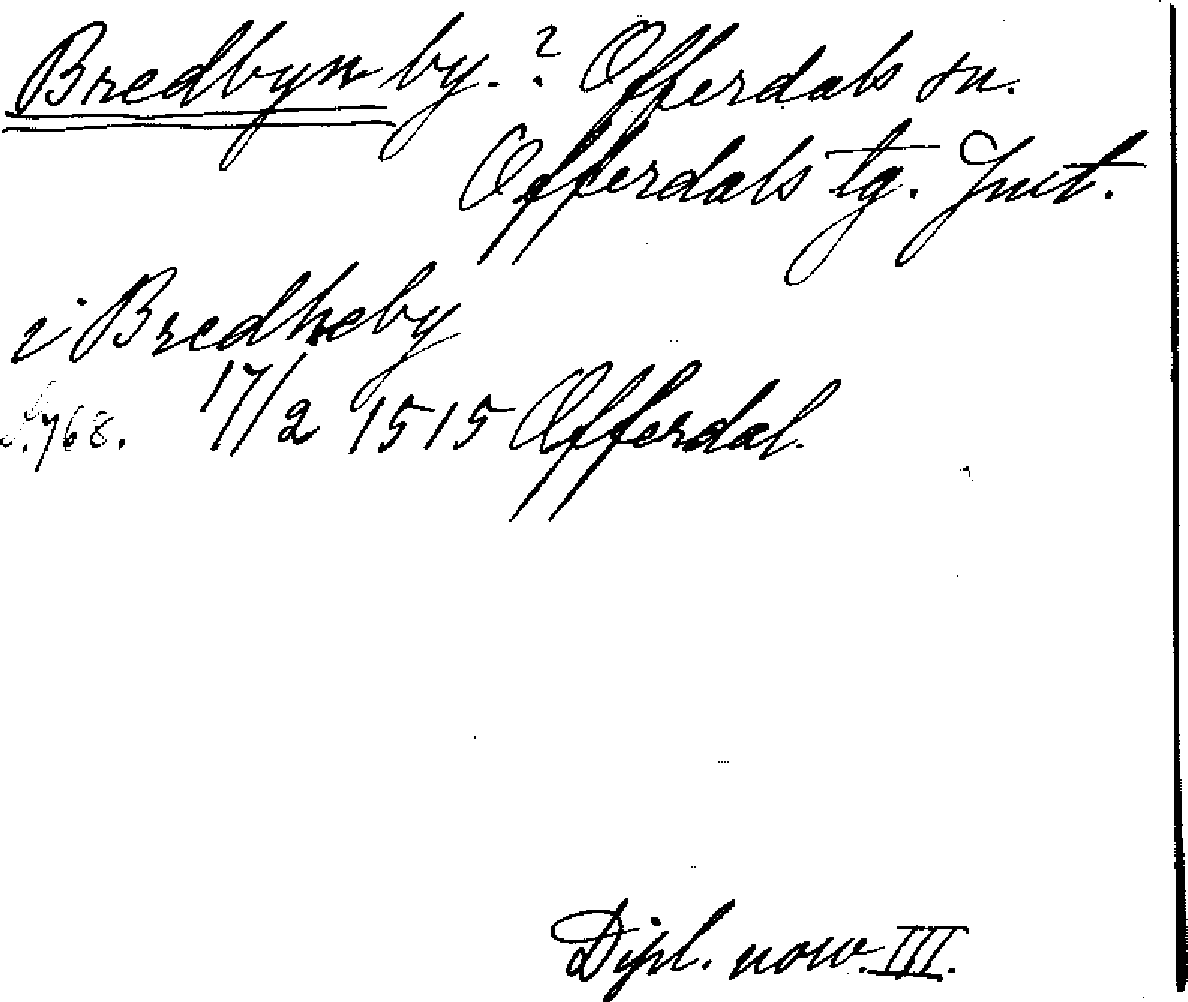 Bredbyn by. ? Offerdals sn.
Offerdals tg. Jmt.
i Bredheby
S. 768. 17/2 1515 Offerdal.
Dipl. norv. III.